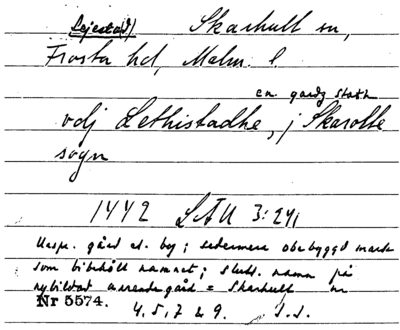 Lejestad) Skarhult sn,
Frosta hd, Malm. l.
en gardz stath
vdj Lethistadhe, j Skarolte
sogn
1442 LAU 3:241
Urspr. gård el. by; sedermera obebyggd mark
som bibehöll namnet; slutl. namn på
nybildad arrendegård = Skarhult nr
Nr 5574. 4, 5, 7 & 9. J. S.